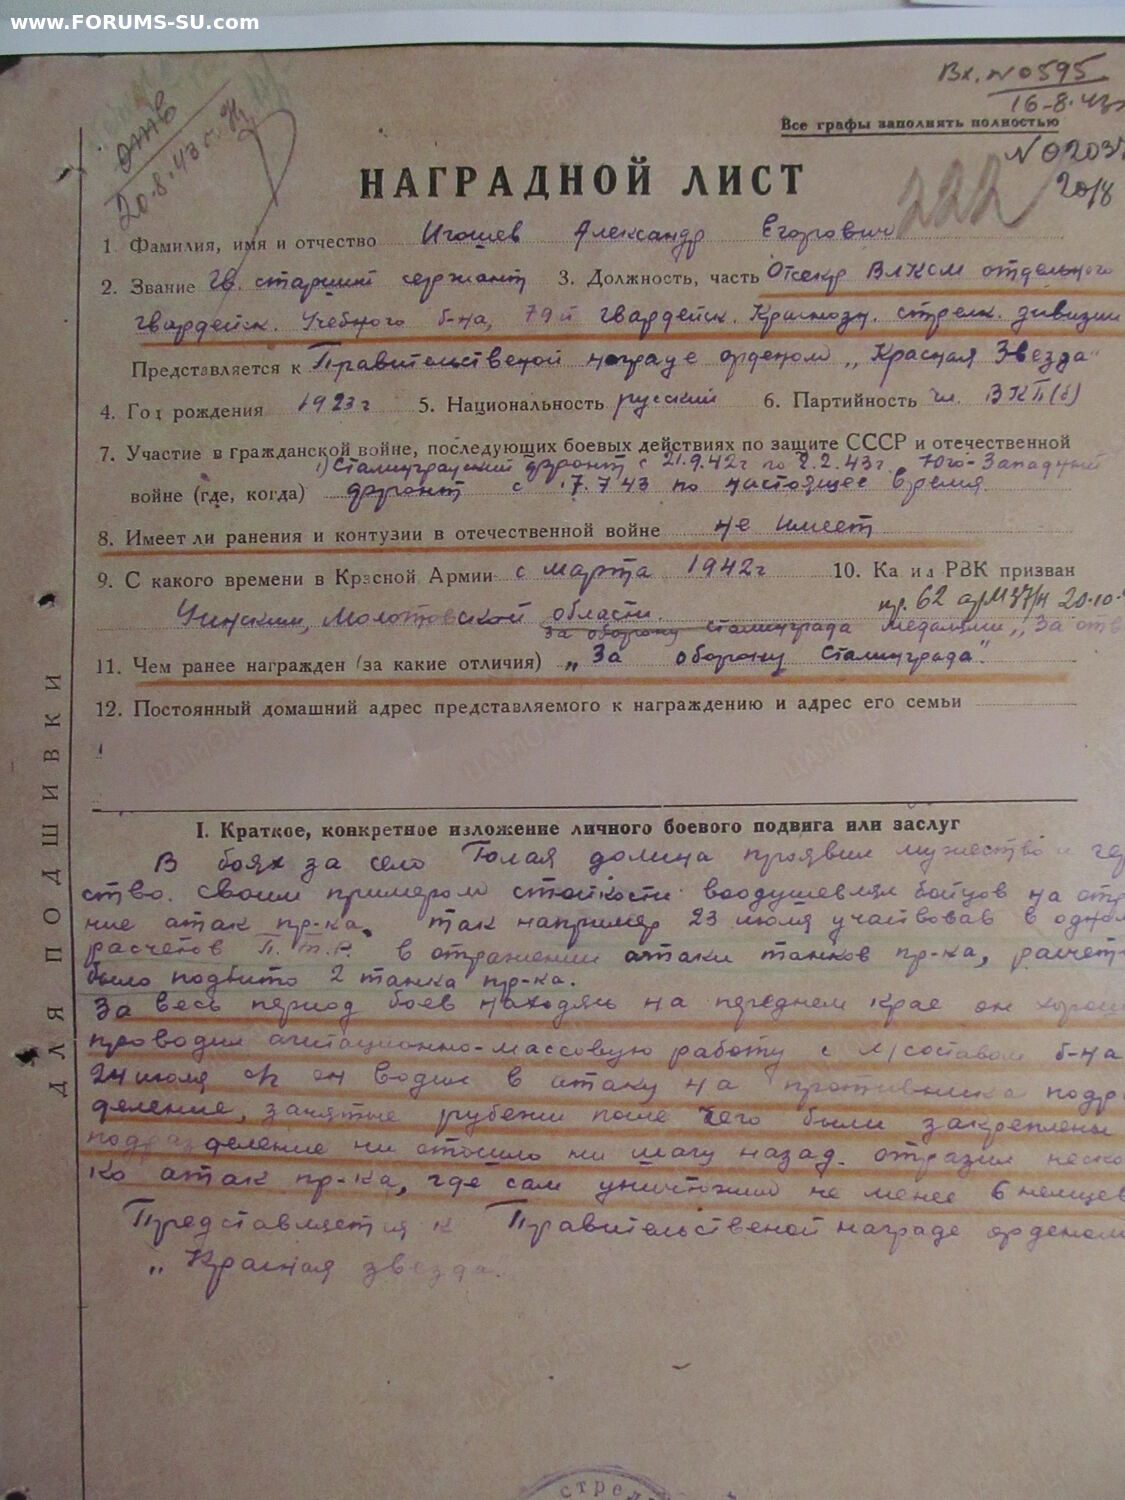 www.FORUMS-SU.com
Вх. №0595
16-8-43
Все графы заполнять полностью
№ 0203
20/8
20.8.43 г.
222
НАГРАДНОЙ ЛИСТ
1. Фамилия, имя и отчество Игошев Александр Егорович
2. Звание Гв. старший сержант 3. Должность, часть Отсекр ВЛКСМ отдельного
гвардейск. Учебного б-на, 79й гвардейск. Краснозн. стрелк. дивизии
Представляется к Правительственой награде орденом „Красная Звезда"
4. Год рождения 1923 г 5. Национальность русский 6. Партийность чл. ВКП(б)
7. Участие в гражданской войне, последующих боевых действиях по защите СССР и отечественной
1) Сталинградский фронт с 21.9.42г по 2.2.43г. Юго-Западный
войне (где, когда) фронт с 17.7.43 по настоящее время.
8. Имеет ли ранения и контузии в отечественной войне не имеет
9. С какого времени в Красной Армии с марта 1942г 10. Каким РВК призван
Чинским, Молотовской области. пр. 62 арм 37/н 20.10.
За оборону Сталинграда медалями „За отв
11. Чем ранее награжден (за какие отличия) „За оборону Сталинграда".
12. Постоянный домашний адрес представляемого к награждению и адрес его семьи
ДЛЯ ПОДШИВКИ
I. Краткое, конкретное изложение личного боевого подвига или заслуг
В боях за село Голая долина проявил мужество и гер
ство. Своим примером стойкости воодушевлял бойцов на отр
ние атак пр-ка, так например 23 июля участвовав в одном
расчетов П.т.Р. в отражении атаки танков пр-ка, расчет
было подбито 2 танка пр-ка.
За весь период боев находясь на переднем крае он хорошо
проводил агитационно-массовую работу с л/составом б-на
24 июля он водил в атаку на противника подр
деление, занятые рубежи после чего были закреплены
подразделение ни отошло ни шагу назад. отразил неско
ко атак пр-ка, где сам уничтожил не менее 6 немцев
Представляется к Правительственой награде орденом
„Красная звезда.
стрел